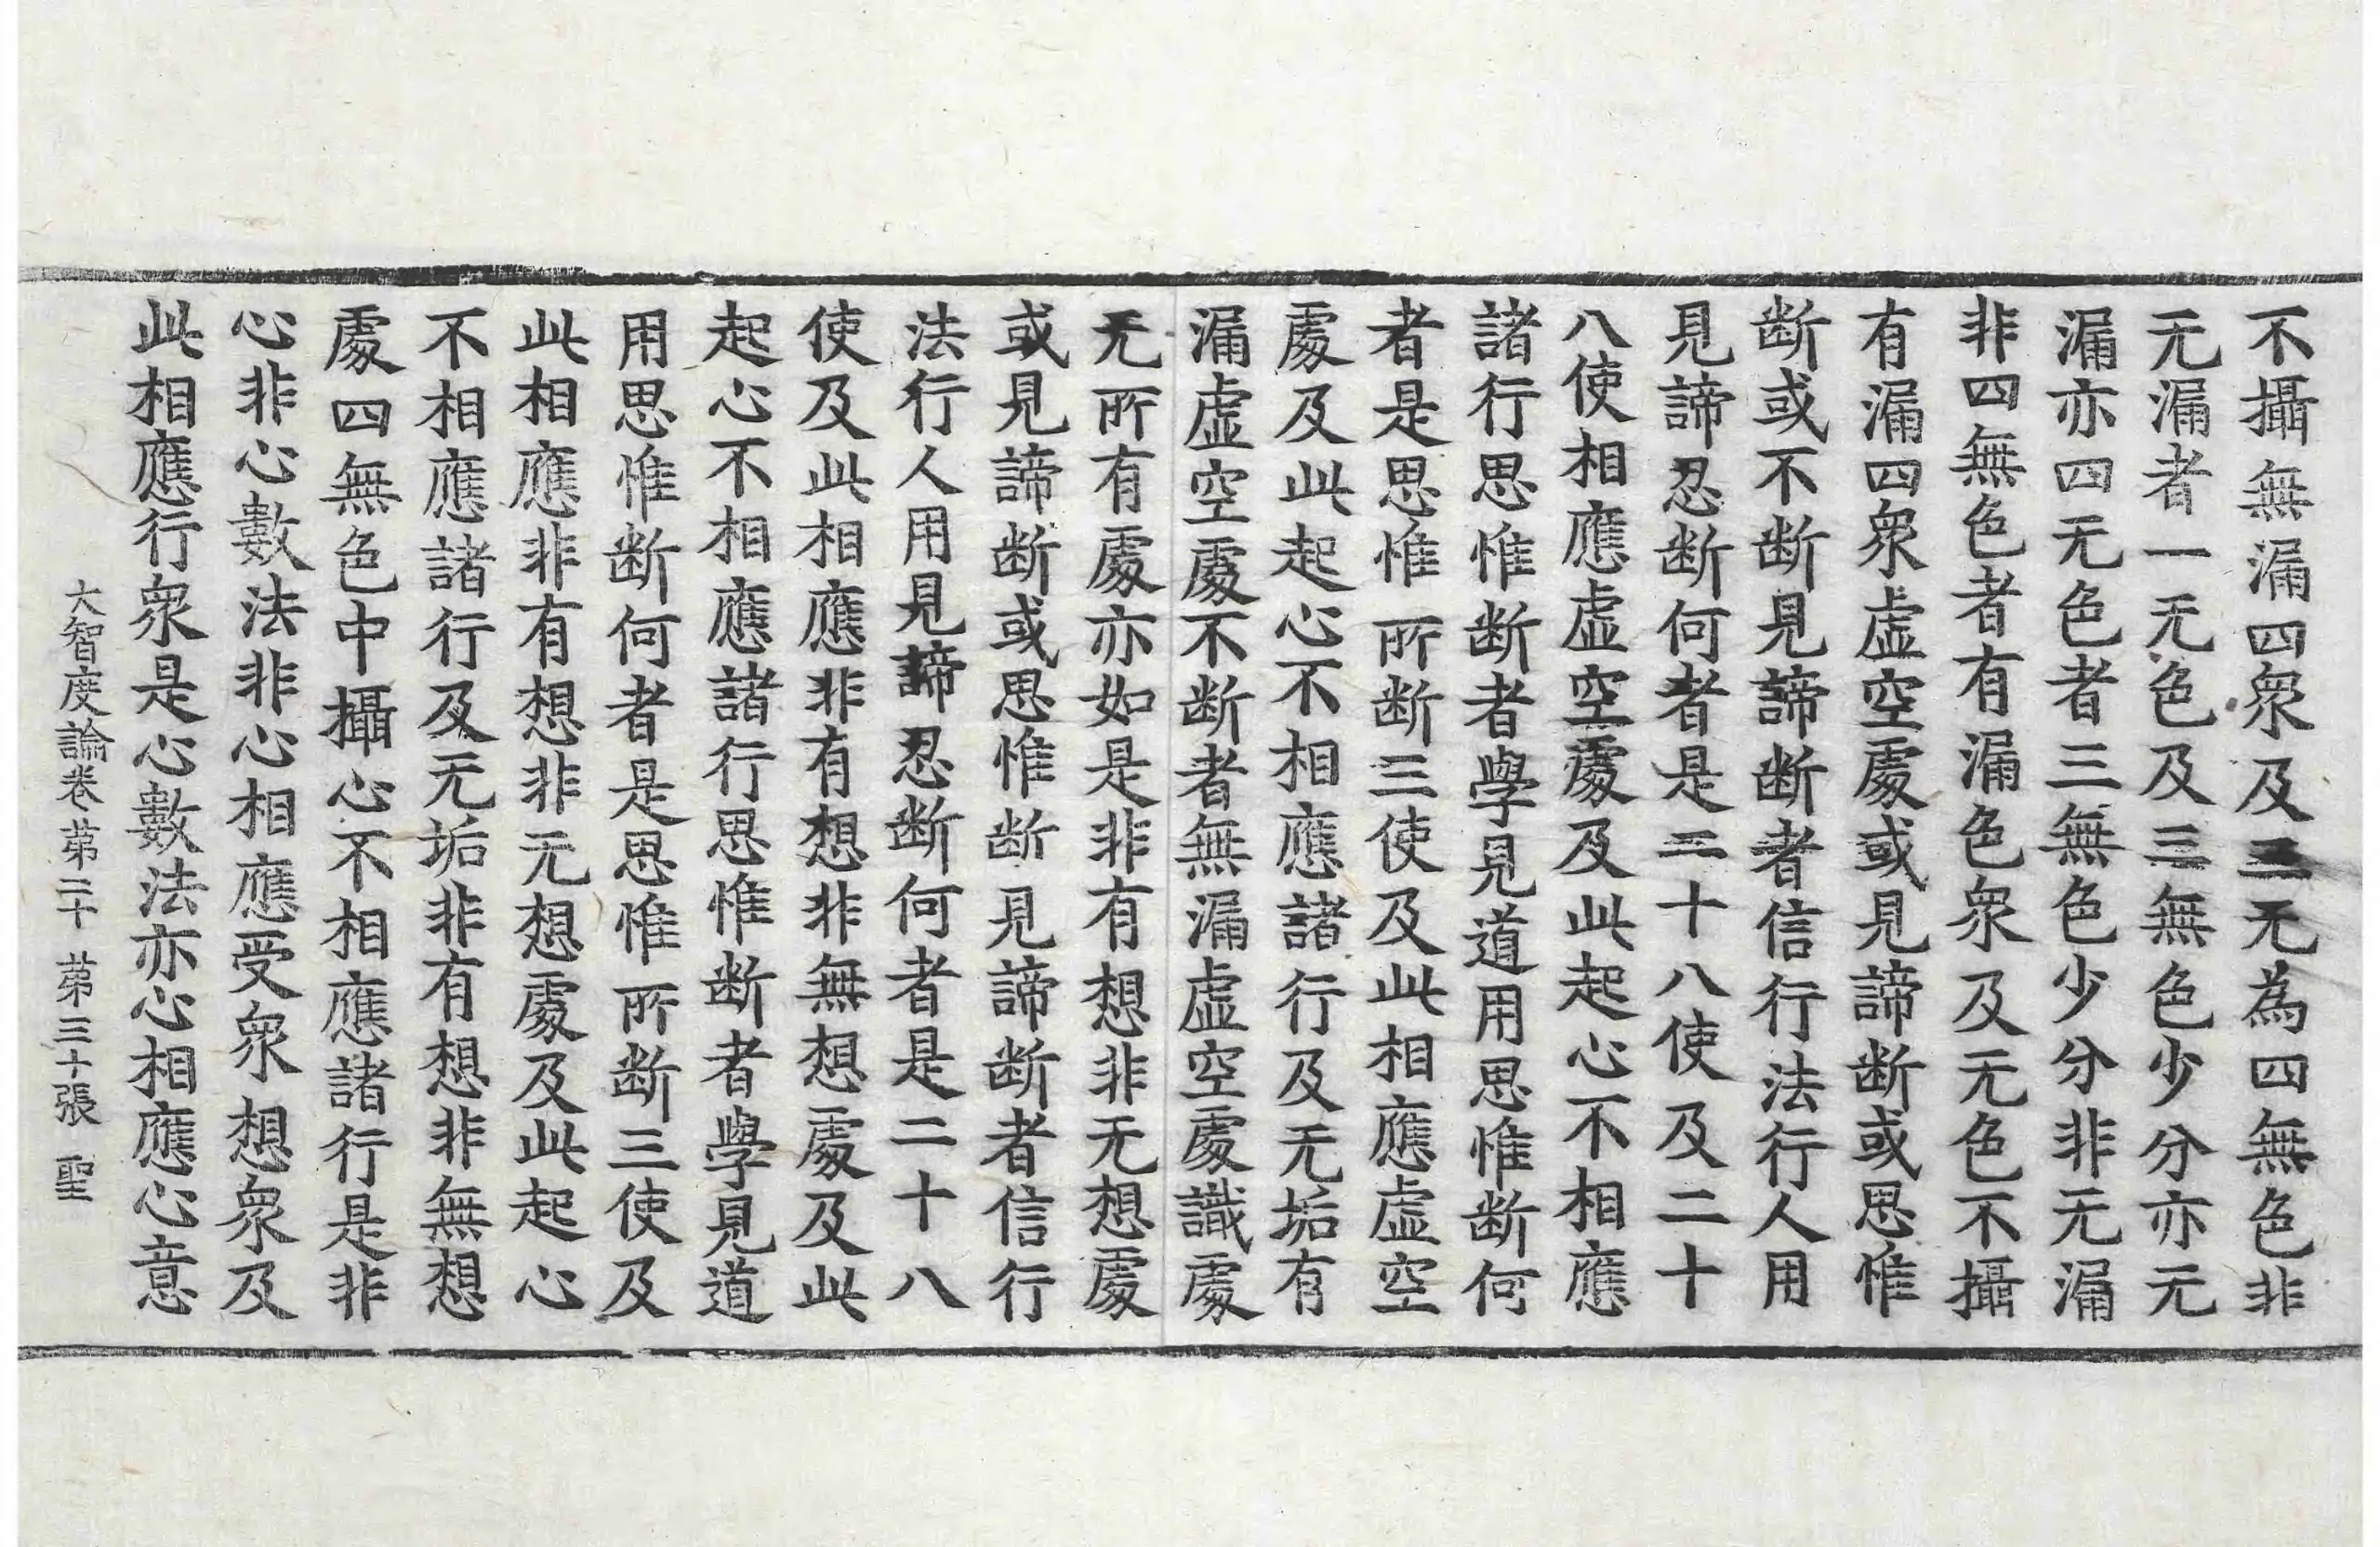 不攝無漏四衆及三无為四無色非
无漏者一无色及三無色少分亦无
漏亦四无色者三無色少分非无漏
非四無色者有漏色衆及无色不攝
有漏四衆虛空處或見諦斷或思惟
断或不断見諦断者信行法行人用
見諦忍断何者是二十八使及二十
八使相應虛空處及此起心不相應
諸行思惟断者學見道用思惟断何
者是思惟所断三使及此相應虛空
處及此起心不相應諸行及无垢有
漏虛空處不断者無漏虛空處識處
无所有處亦如是非有想非无想處
或見諦断或思惟断見諦断者信行
法行人用見諦忍断何者是二十八
使及此相應非有想非無想處及此
起心不相應諸行思惟断者學見道
用思惟断何者是思惟所断三使及
此相應非有想非无想處及此起心
不相應諸行及无垢非有想非無想
處四無色中攝心不相應諸行是非
心非心數法非心相應受衆想衆及
此相應行衆是心數法亦心相應心意
大智度論卷第二十 第三十張 聖